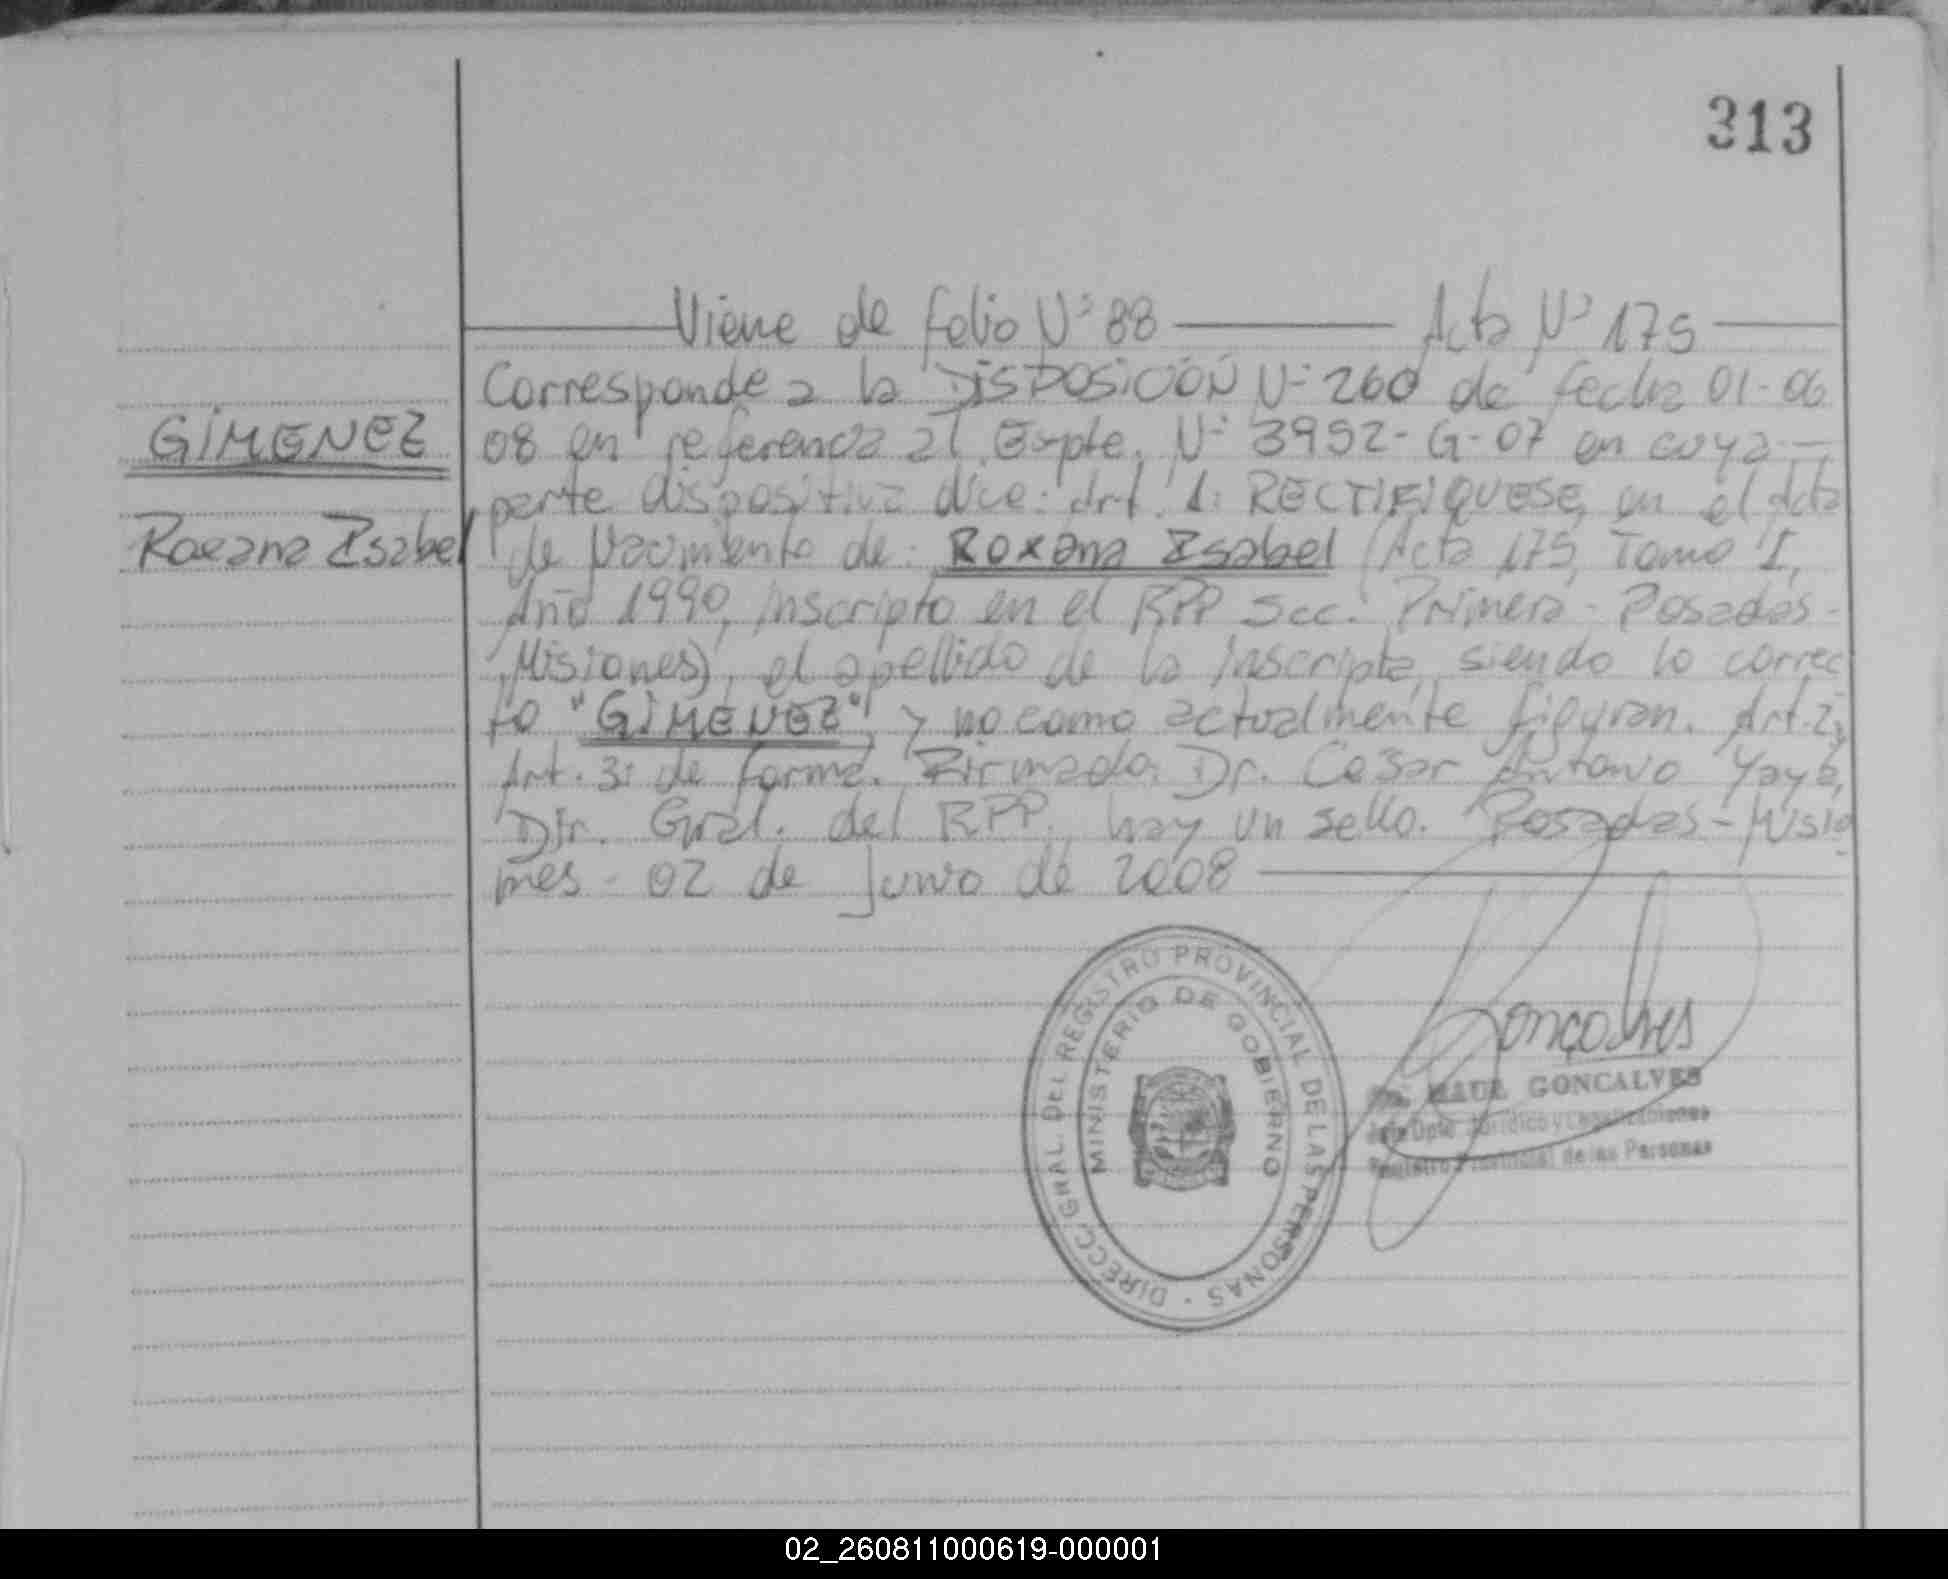 313
Viene de folio N° 88 Acta N° 175
Corresponde a la DISPOSICIÓN N° 260 de fecha 01-06
GIMENEZ
08 en referencia al Expte. N° 3952-G-07 en cuya
parte dispositiva dice: Art. 1: RECTIFIQUESE, en el Acta
Roxana Isabel
de Nacimiento de: Roxana Isabel (Acta 175, Tomo I,
Año 1990, inscripto en el RPP Scc. Primera - Posadas -
Misiones), el apellido de la inscripta, siendo lo correc
to "GIMENEZ", y no como actualmente figuran. Art. 2,
Art. 3: de forma. Firmado: Dr. Cesar Antonio Yaya,
Dir. Gral. del RPP. hay un sello. Posadas - Misio
nes - 02 de Junio de 2008
DIRECC. GRAL. DEL REGISTRO PROVINCIAL DE LAS PERSONAS
MINISTERIO DE GOBIERNO
Gonçalves
RAUL GONCALVES
Jefe Dpto. Jurídico y Legalizaciones
Registro Provincial de las Personas
02_260811000619-000001